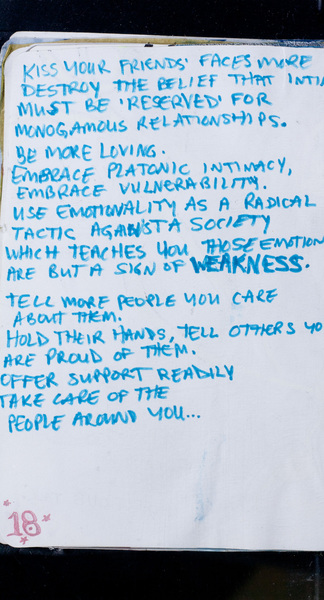 KISS YOUR FRIENDS' FACES MORE
DESTROY THE BELIEF THAT INTI
MUST BE 'RESERVED' FOR
MONOGAMOUS RELATIONSHIPS.
BE MORE LOVING.
EMBRACE PLATONIC INTIMACY,
EMBRACE VULNERABILITY.
USE EMOTIONALITY AS A RADICAL
TACTIC AGAINST A SOCIETY
WHICH TEACHES YOU THOSE EMOTION
ARE BUT A SIGN OF WEAKNESS.
TELL MORE PEOPLE YOU CARE
ABOUT THEM.
HOLD THEIR HANDS, TELL OTHERS YO
ARE PROUD OF THEM.
OFFER SUPPORT READILY
TAKE CARE OF THE
PEOPLE AROUND YOU...
18